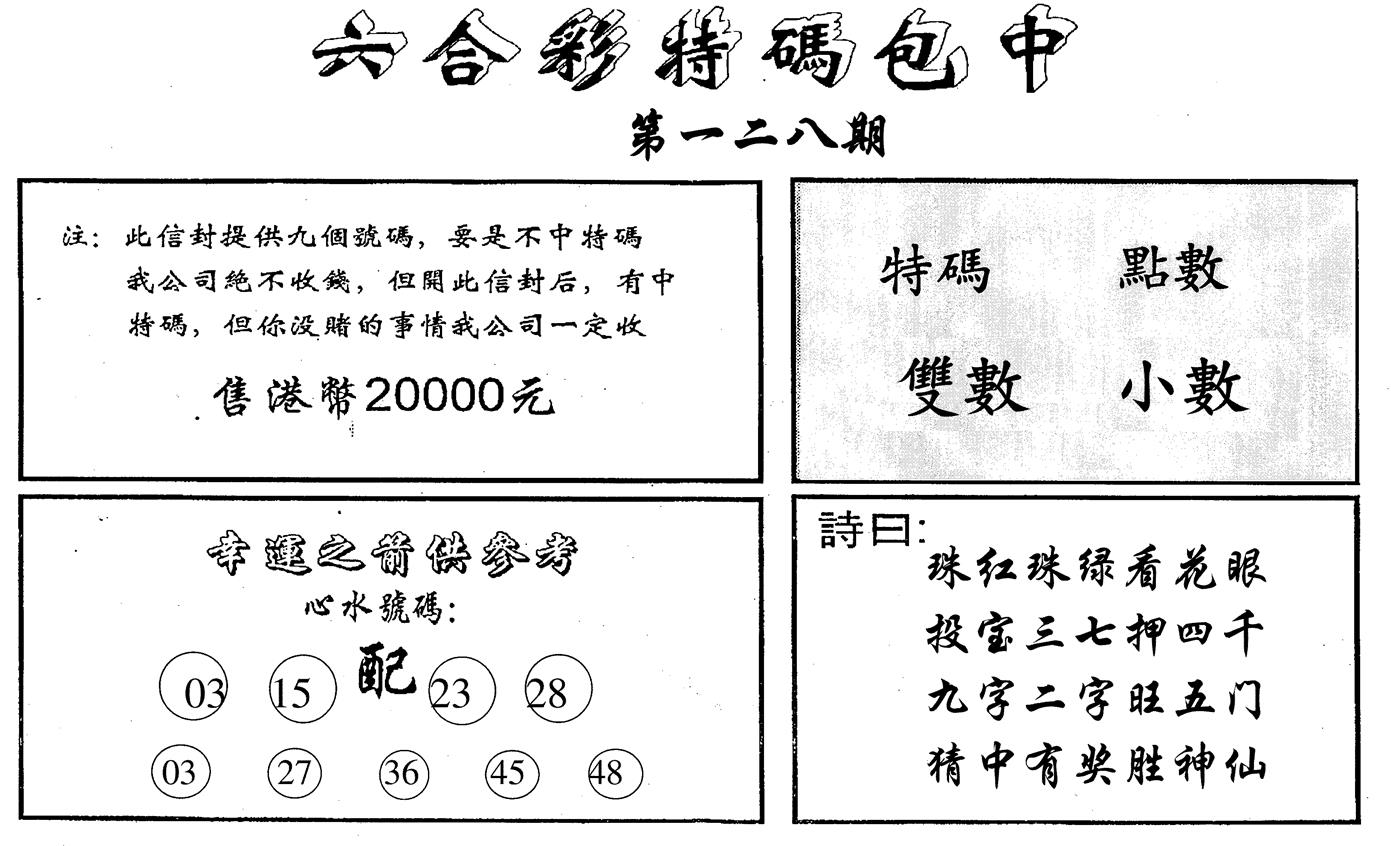 六合彩特碼包中
第一二八期
注：此信封提供九個號碼，要是不中特碼
我公司絶不收錢，但開此信封后，有中
特碼，但你没賭的事情我公司一定收
售港幣20000元
特碼 點數
雙數 小數
幸運之箭供參考
心水號碼：
03 15 配 23 28
03 27 36 45 48
詩曰：
珠红珠绿看花眼
投宝三七押四千
九字二字旺五门
猜中有奖胜神仙